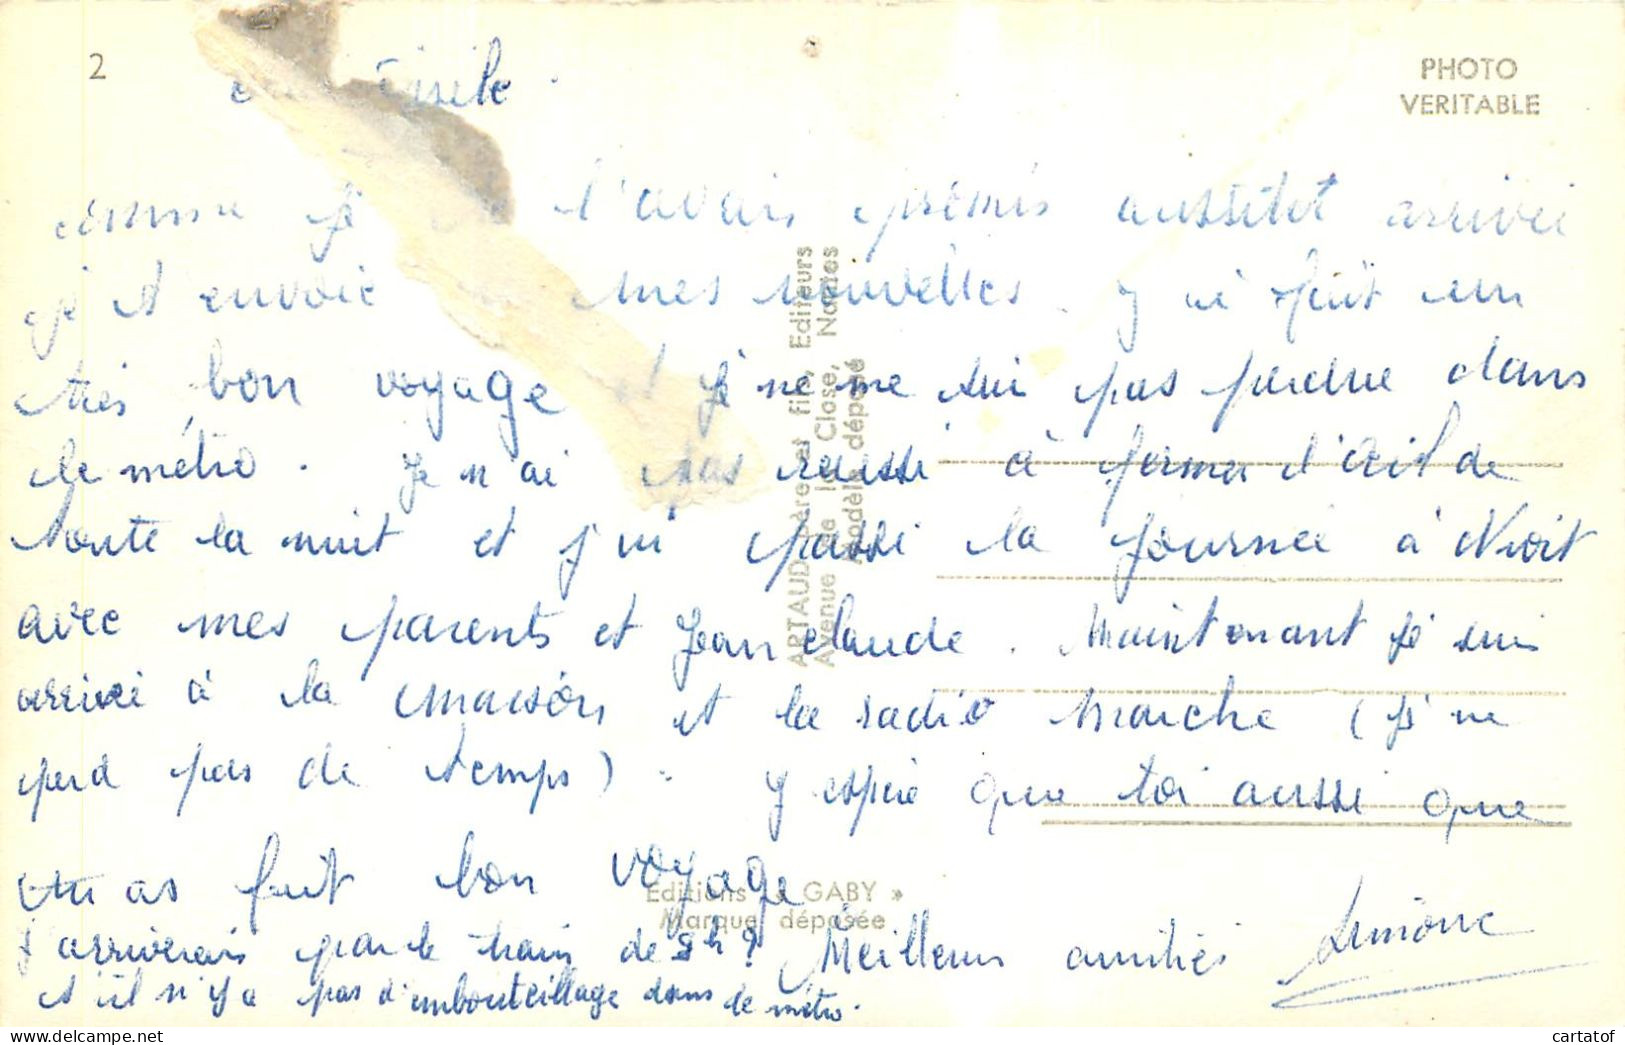 2
PHOTO
VERITABLE
comme je l'avais promis aussitot arrivée
je t envoie mes nouvelles. J ai fait un
très bon voyage et je ne me sui pas perdue dans
le métro. Je n ai pas reussi à fermer l'œil de
toute la nuit et j'ai passé la journée à Niort
avec mes parents et Jean claude. Maintenant je suis
arrivé à la maison et la radio marche (je ne
perd pas de temps). J espère que toi aussi que
tu as fait bon voyage
J arriverais par le train de 5h? Meilleurs amitiés Simone
s'il n'y a pas d'embouteillage dans le métro.
ARTAUD père et fils, Editeurs
Avenue de la Close, Nantes
Modèle déposé
Editions « GABY »
Marque déposée
cartatof